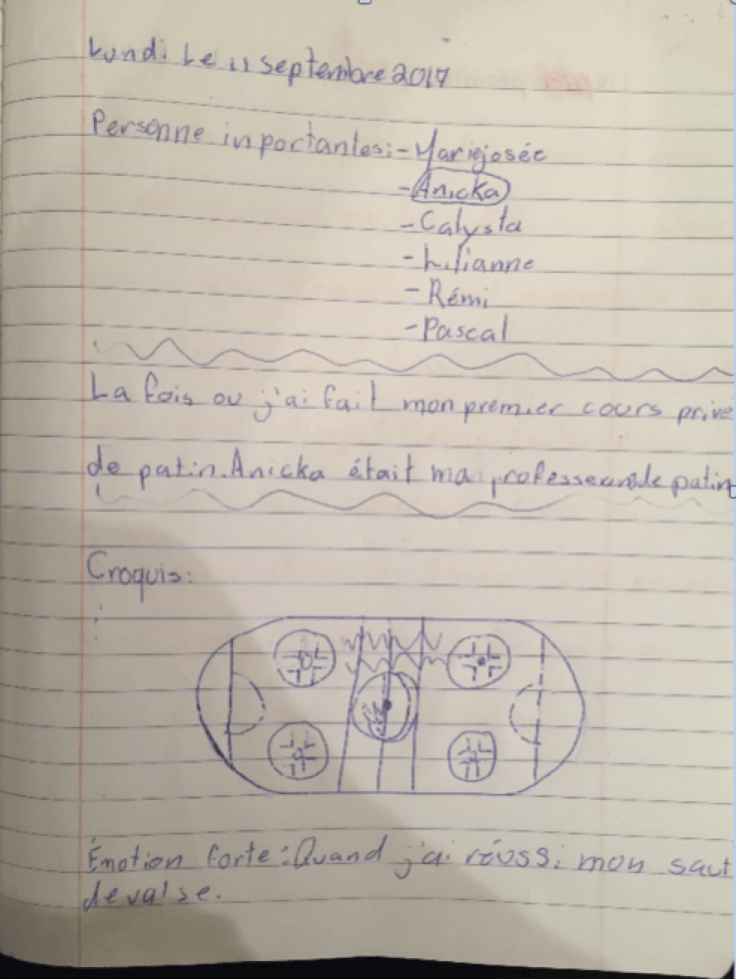 Lundi Le 11 septembre 2017
Personne inportantes: - Mariejosée
- Anicka
- Calysta
- Lilianne
- Rémi
- Pascal
La fois ou j'ai fait mon premier cours privé
de patin. Anicka était ma professeure de patin
Croquis:
Émotion forte: Quand j'ai réussi mon saut
de valse.